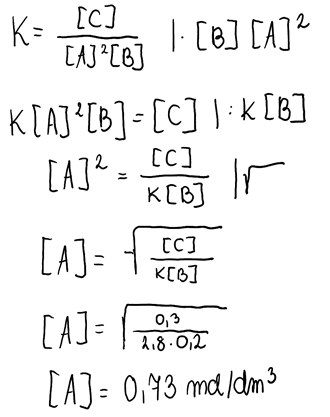 K = [C] / [A]²[B] | · [B] [A]²
K[A]²[B] = [C] | : K[B]
[A]² = [C] / K[B] | √
[A] = √([C] / K[B])
[A] = √(0,3 / 2,8 · 0,2)
[A] = 0,73 mol/dm³